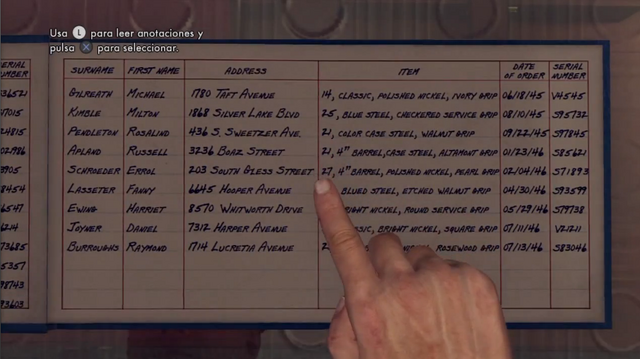 Usa L para leer anotaciones y
pulsa X para seleccionar.
SURNAME FIRST NAME ADDRESS ITEM DATE OF ORDER SERIAL NUMBER
GILREATH MICHAEL 1780 TAFT AVENUE 14, CLASSIC, POLISHED NICKEL, IVORY GRIP 06/18/45 V4545
KIMBLE MILTON 1868 SILVER LAKE BLVD 25, BLUE STEEL, CHECKERED SERVICE GRIP 08/10/45 S95732
PENDLETON ROSALIND 436 S. SWEETZER AVE. 21, COLOR CASE STEEL, WALNUT GRIP 09/22/45 S97845
APLAND RUSSELL 3236 BOAZ STREET 21, 4" BARREL, CASE STEEL, ALTAMONT GRIP 01/23/46 S85621
SCHROEDER ERROL 203 SOUTH GLESS STREET 27, 4" BARREL, POLISHED NICKEL, PEARL GRIP 02/04/46 S71893
LASSETER FANNY 6645 HOOPER AVENUE BLUED STEEL, ETCHED WALNUT GRIP 04/30/46 S93599
EWING HARRIET 8570 WHITWORTH DRIVE NICKEL, ROUND SERVICE GRIP 05/29/46 S79738
JOYNER DANIEL 7312 HARPER AVENUE BRIGHT NICKEL, SQUARE GRIP 07/11/46 V21211
BURROUGHS RAYMOND 1714 LUCRETIA AVENUE ROSEWOOD GRIP 07/13/46 S83046